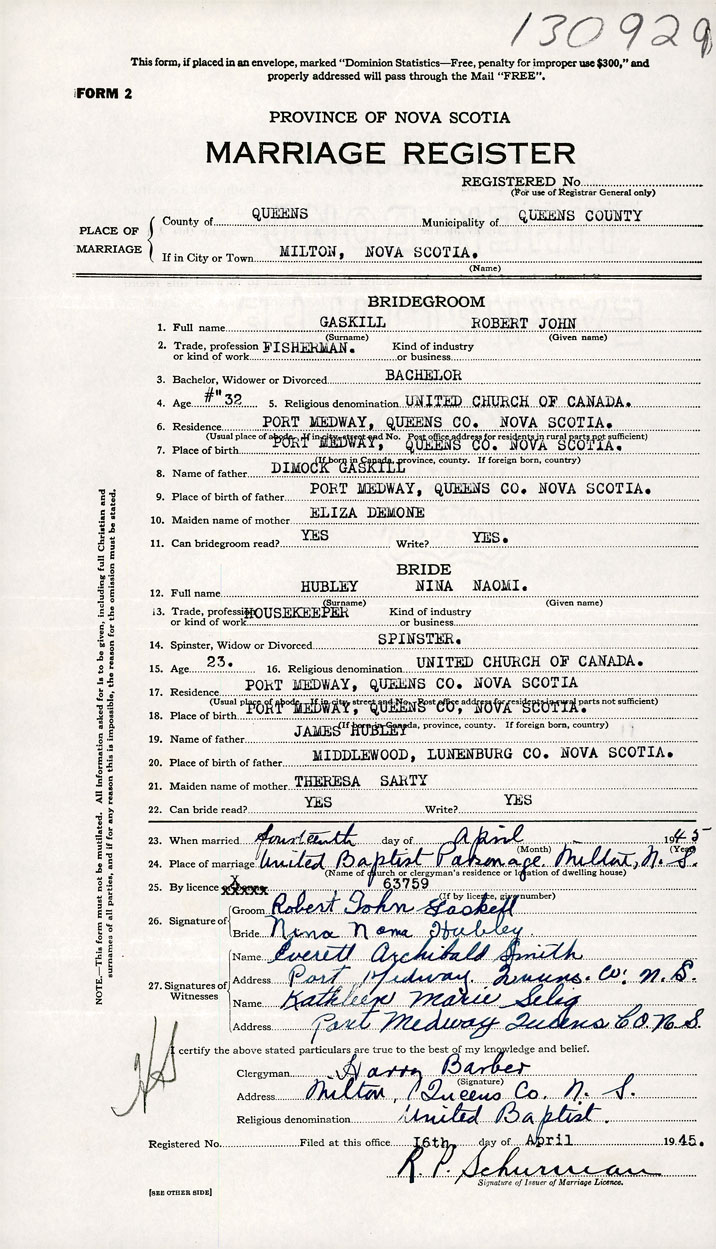 130929
This form, if placed in an envelope, marked "Dominion Statistics—Free, penalty for improper use $300," and
properly addressed will pass through the Mail "FREE".
FORM 2
PROVINCE OF NOVA SCOTIA
MARRIAGE REGISTER
REGISTERED No.
(For use of Registrar General only)
PLACE OF MARRIAGE
County of QUEENS Municipality of QUEENS COUNTY
If in City or Town MILTON, NOVA SCOTIA.
(Name)
BRIDEGROOM
1. Full name GASKILL ROBERT JOHN
(Surname) (Given name)
2. Trade, profession or kind of work FISHERMAN. Kind of industry or business
3. Bachelor, Widower or Divorced BACHELOR
4. Age #"32 5. Religious denomination UNITED CHURCH OF CANADA.
6. Residence PORT MEDWAY, QUEENS CO. NOVA SCOTIA.
(Usual place of abode. If in city, street and No. Post office address for residents in rural parts not sufficient)
7. Place of birth PORT MEDWAY, QUEENS CO. NOVA SCOTIA.
(If born in Canada, province, county. If foreign born, country)
8. Name of father DIMOCK GASKILL
9. Place of birth of father PORT MEDWAY, QUEENS CO. NOVA SCOTIA.
10. Maiden name of mother ELIZA DEMONE
11. Can bridegroom read? YES Write? YES.
BRIDE
12. Full name HUBLEY NINA NAOMI.
(Surname) (Given name)
13. Trade, profession or kind of work HOUSEKEEPER Kind of industry or business
14. Spinster, Widow or Divorced SPINSTER.
15. Age 23. 16. Religious denomination UNITED CHURCH OF CANADA.
17. Residence PORT MEDWAY, QUEENS CO. NOVA SCOTIA
(Usual place of abode. If in city, street and No. Post office address for residents in rural parts not sufficient)
18. Place of birth PORT MEDWAY, QUEENS CO, NOVA SCOTIA.
(If born in Canada, province, county. If foreign born, country)
19. Name of father JAMES HUBLEY
20. Place of birth of father MIDDLEWOOD, LUNENBURG CO. NOVA SCOTIA.
21. Maiden name of mother THERESA SARTY
22. Can bride read? YES Write? YES
23. When married fourteenth day of April 1945
(Month) (Year)
24. Place of marriage United Baptist Parsonage Milton, N. S.
(Name of church or clergyman's residence or location of dwelling house)
25. By licence X xxxxx 63759
(If by licence, give number)
26. Signature of
Groom Robert John Gaskell
Bride Nina Noma Hubley.
27. Signatures of Witnesses
Name Everett Archibald Smith
Address Port Medway. Queens. Co. N. S.
Name Kathleen Marie Selig
Address Port Medway Queens Co. N. S.
I certify the above stated particulars are true to the best of my knowledge and belief.
HB
Clergyman Harry Barber
(Signature)
Address Milton, Queens Co. N. S.
Religious denomination United Baptist.
Registered No. Filed at this office 16th day of April 1945.
R. P. Schurman
Signature of Issuer of Marriage Licence.
[SEE OTHER SIDE]
NOTE.—This form must not be mutilated. All Information asked for is to be given, including full Christian and
surnames of all parties, and if for any reason this is impossible, the reason for the omission must be stated.